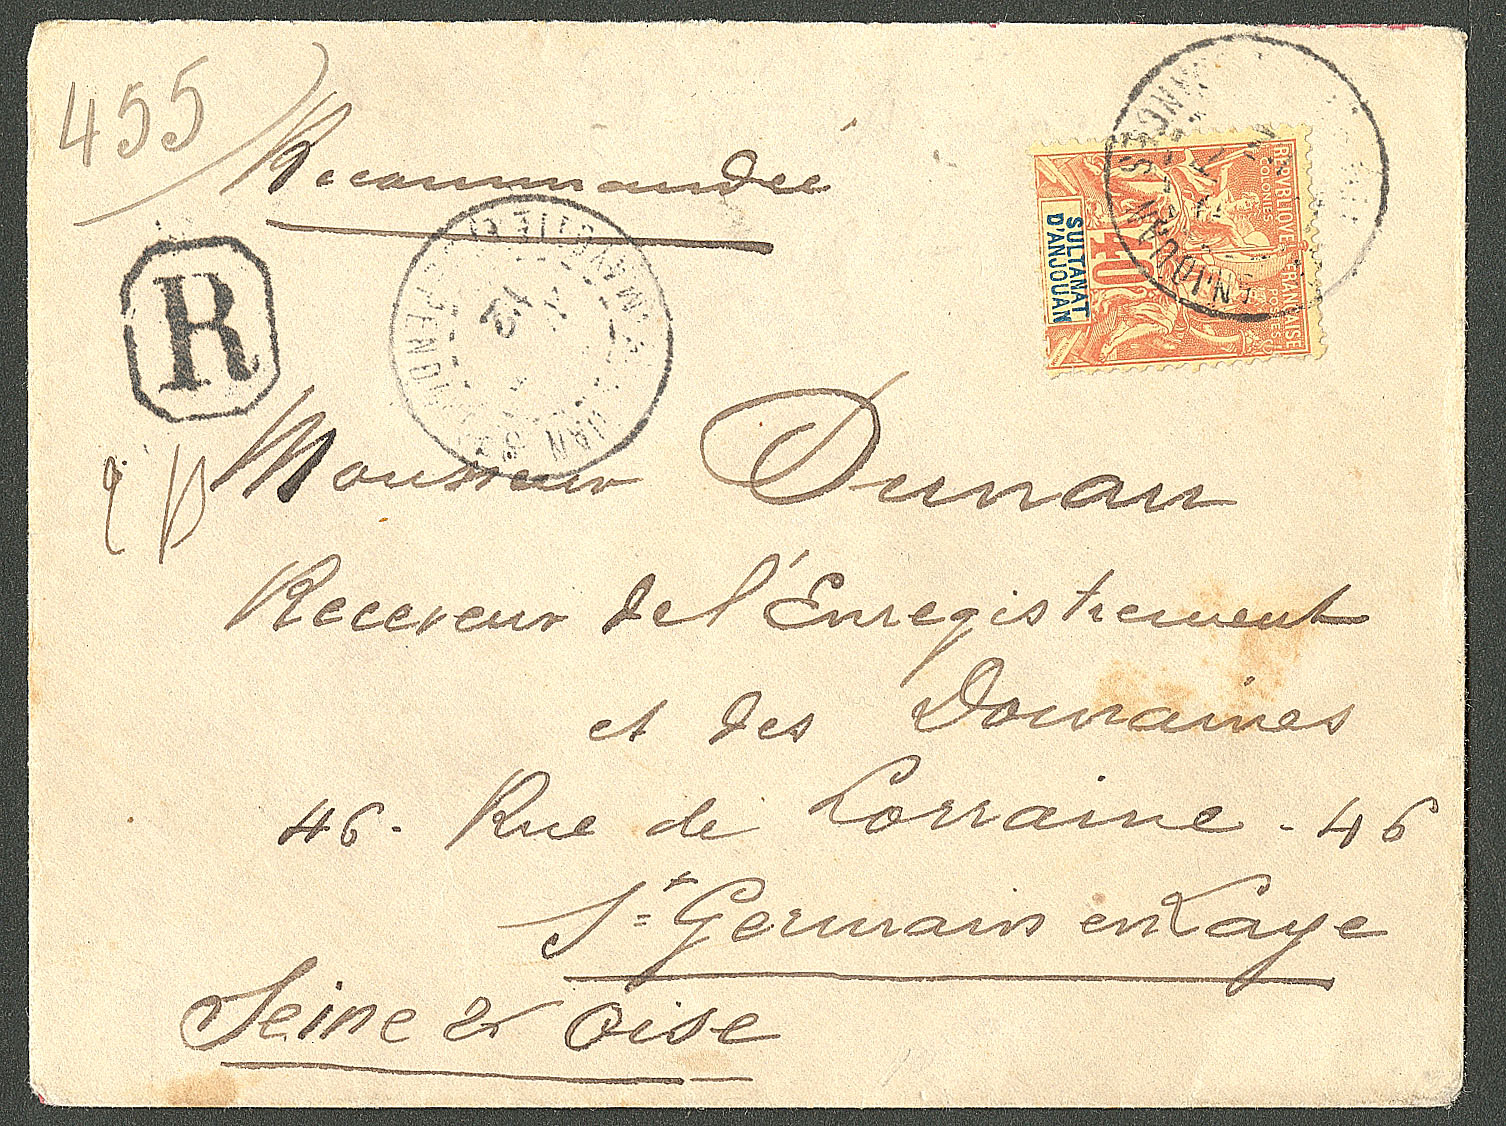 455
Recommandée
R
RÉPUBLIQUE FRANÇAISE
COLONIES
POSTES
40
SULTANAT
D'ANJOUAN
Monsieur Dunan
Receveur de l'Enregistrement
et des Domaines
46. Rue de Lorraine. 46
St Germain en Laye
Seine & Oise